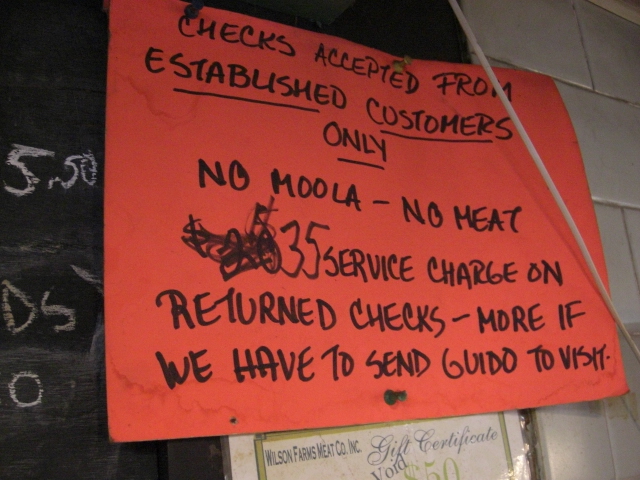 CHECKS ACCEPTED FROM
ESTABLISHED CUSTOMERS
ONLY
NO MOOLA - NO MEAT
35 SERVICE CHARGE ON
RETURNED CHECKS - MORE IF
WE HAVE TO SEND GUIDO TO VISIT.
5.50
DS
O
WILSON FARMS MEAT CO. INC.
Gift Certificate
Void
$50